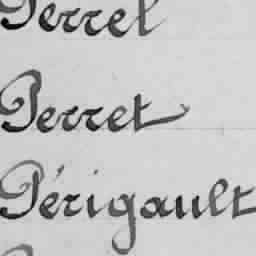 Perrel
Perret
Périgault